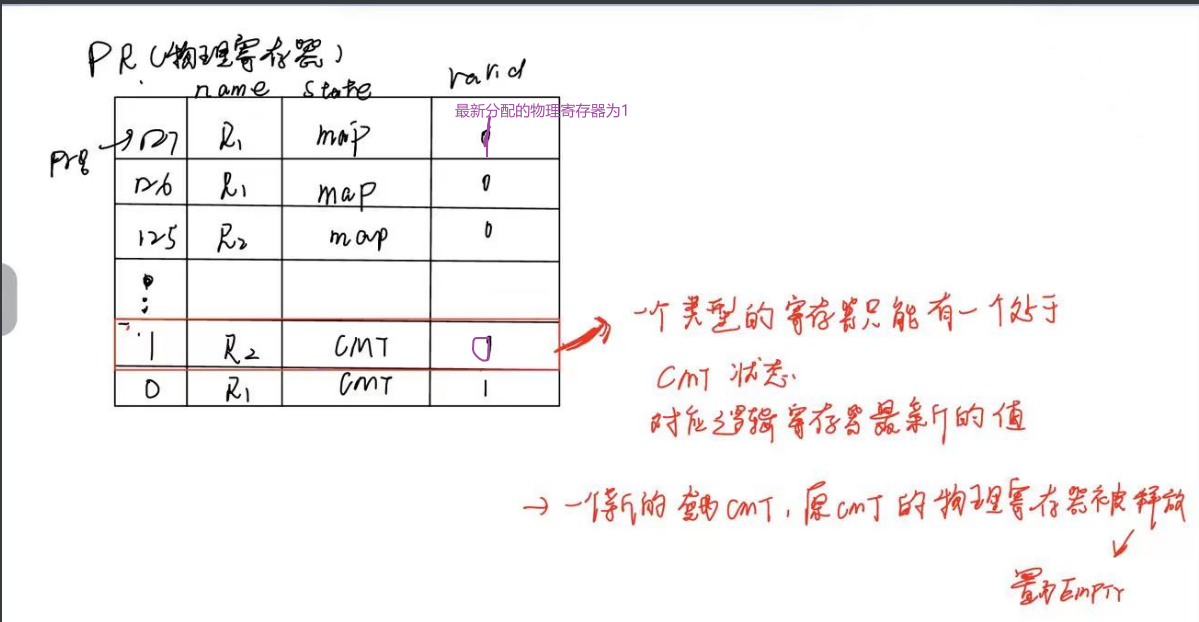 PR（物理寄存器）
name state valid
最新分配的物理寄存器为1
prg → 127 R1 map
126 R1 map 0
125 R2 map 0
1 R2 CMT
0 R1 CMT 1
一个类型的寄存器只能有一个处于
CMT 状态
对应逻辑寄存器最新的值
→ 一个新的变为CMT，原CMT的物理寄存器被释放
置为EMPTY